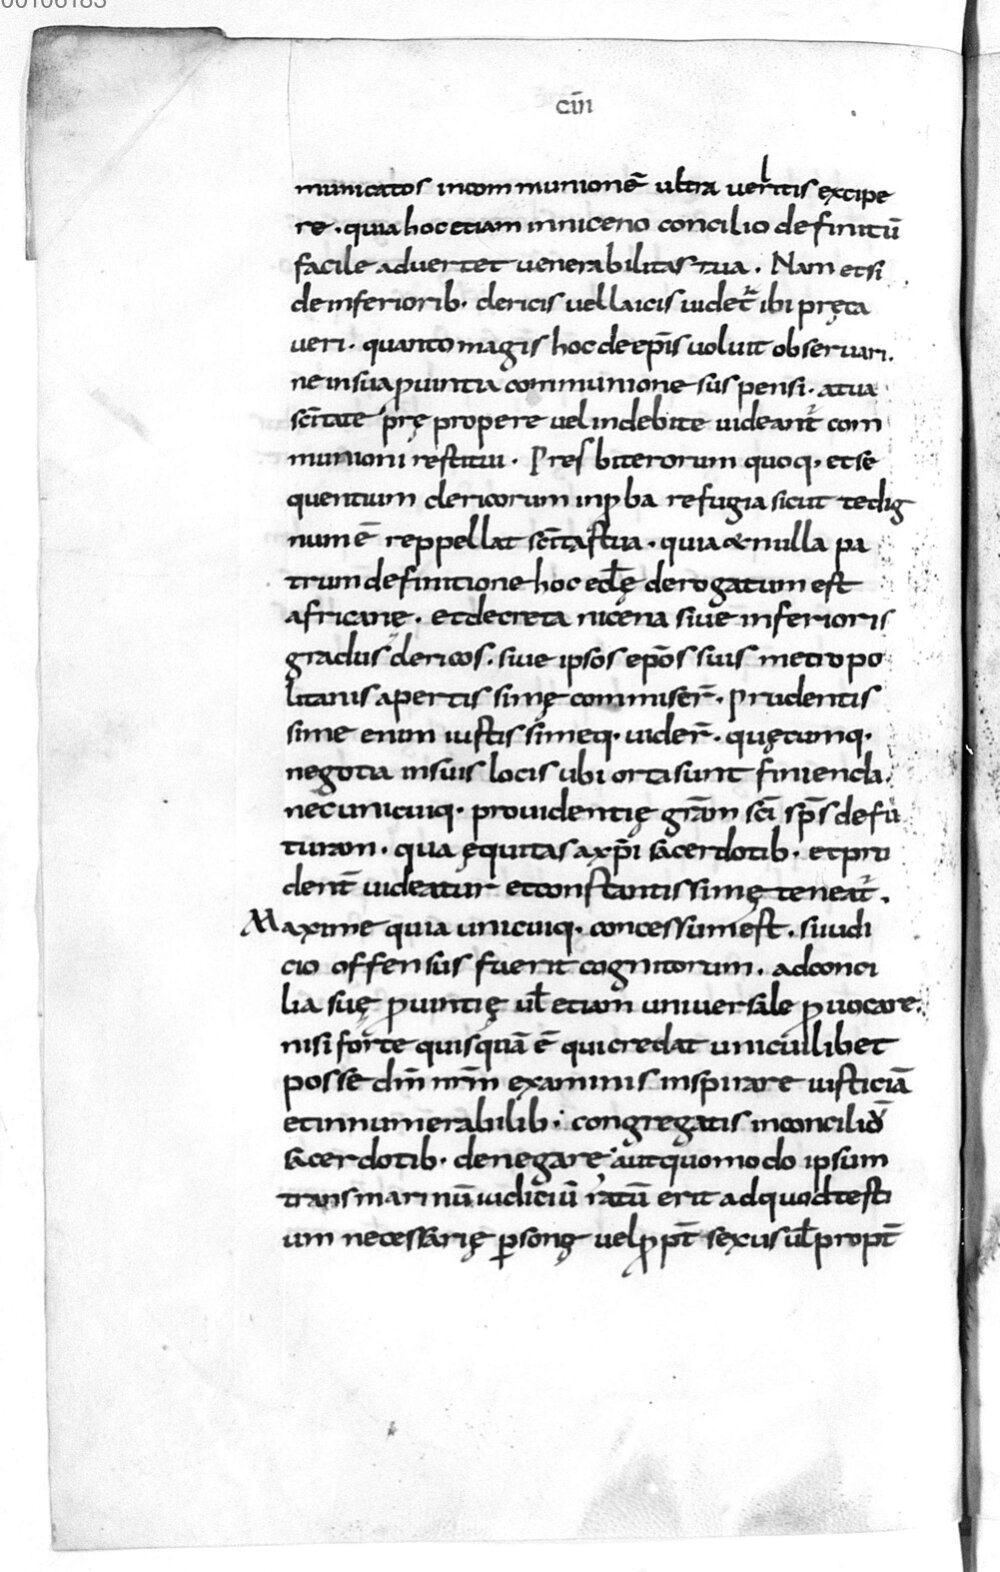 00106183
ciiii
municatos incommunionē ultra uelitis excipe
re · quia hoc etiam inniceno concilio definitū
facile aduertet uenerabilitas tua · Nam etsi
de inferiorib· clericis uel laicis uidet᷑ ibi pręca
ueri · quanto magis hoc de ep̄is uoluit obseruari ·
ne insua ꝓuintia communione suspensi · atua
sc̄itate prępropere uel indebite uideant᷑ com
munioni restitui · Presbiterorum quoq· et se
quentium clericorum inꝓba refugia sicut te dig
num ē reppellat sc̄itas tua · quia & nulla pa
trum definitione hoc eccl̄ę derogatum est
africanę · et decreta nicena siue inferioris
gradus clericos · siue ipsos ep̄os suis metropo
litanis apertissimę commiser̄ · prudentis
sime enim iustissimeq· uider̄ · quęcumq·
negotia insuis locis ubi orta sunt finienda ·
nec unicuiq· prouidentię gr̄am sc̄i sp̄s defu
turam · qua ęquitas axp̄i sacerdotib· et pru
dent̄ uideatur et constantissimę teneat᷑ ·
Maxime quia unicuiq· concessum est · si iudi
cio offensus fuerit cognitorum · ad conci
lia suę ꝓuintię ul̄ etiam uniuersale ꝓuocare ·
nisi forte quisquā ē qui credat unicuilibet
posse dn̄m nr̄m examinis inspirare iusticiā
et innumerabilib· congregatis inconciliū
sacerdotib· denegare aut quomodo ipsum
transmarinū iudiciū ratū erit ad quod testi
um necessarię ꝑsonę uel ꝓpt̄ sexus ul̄ propt̄